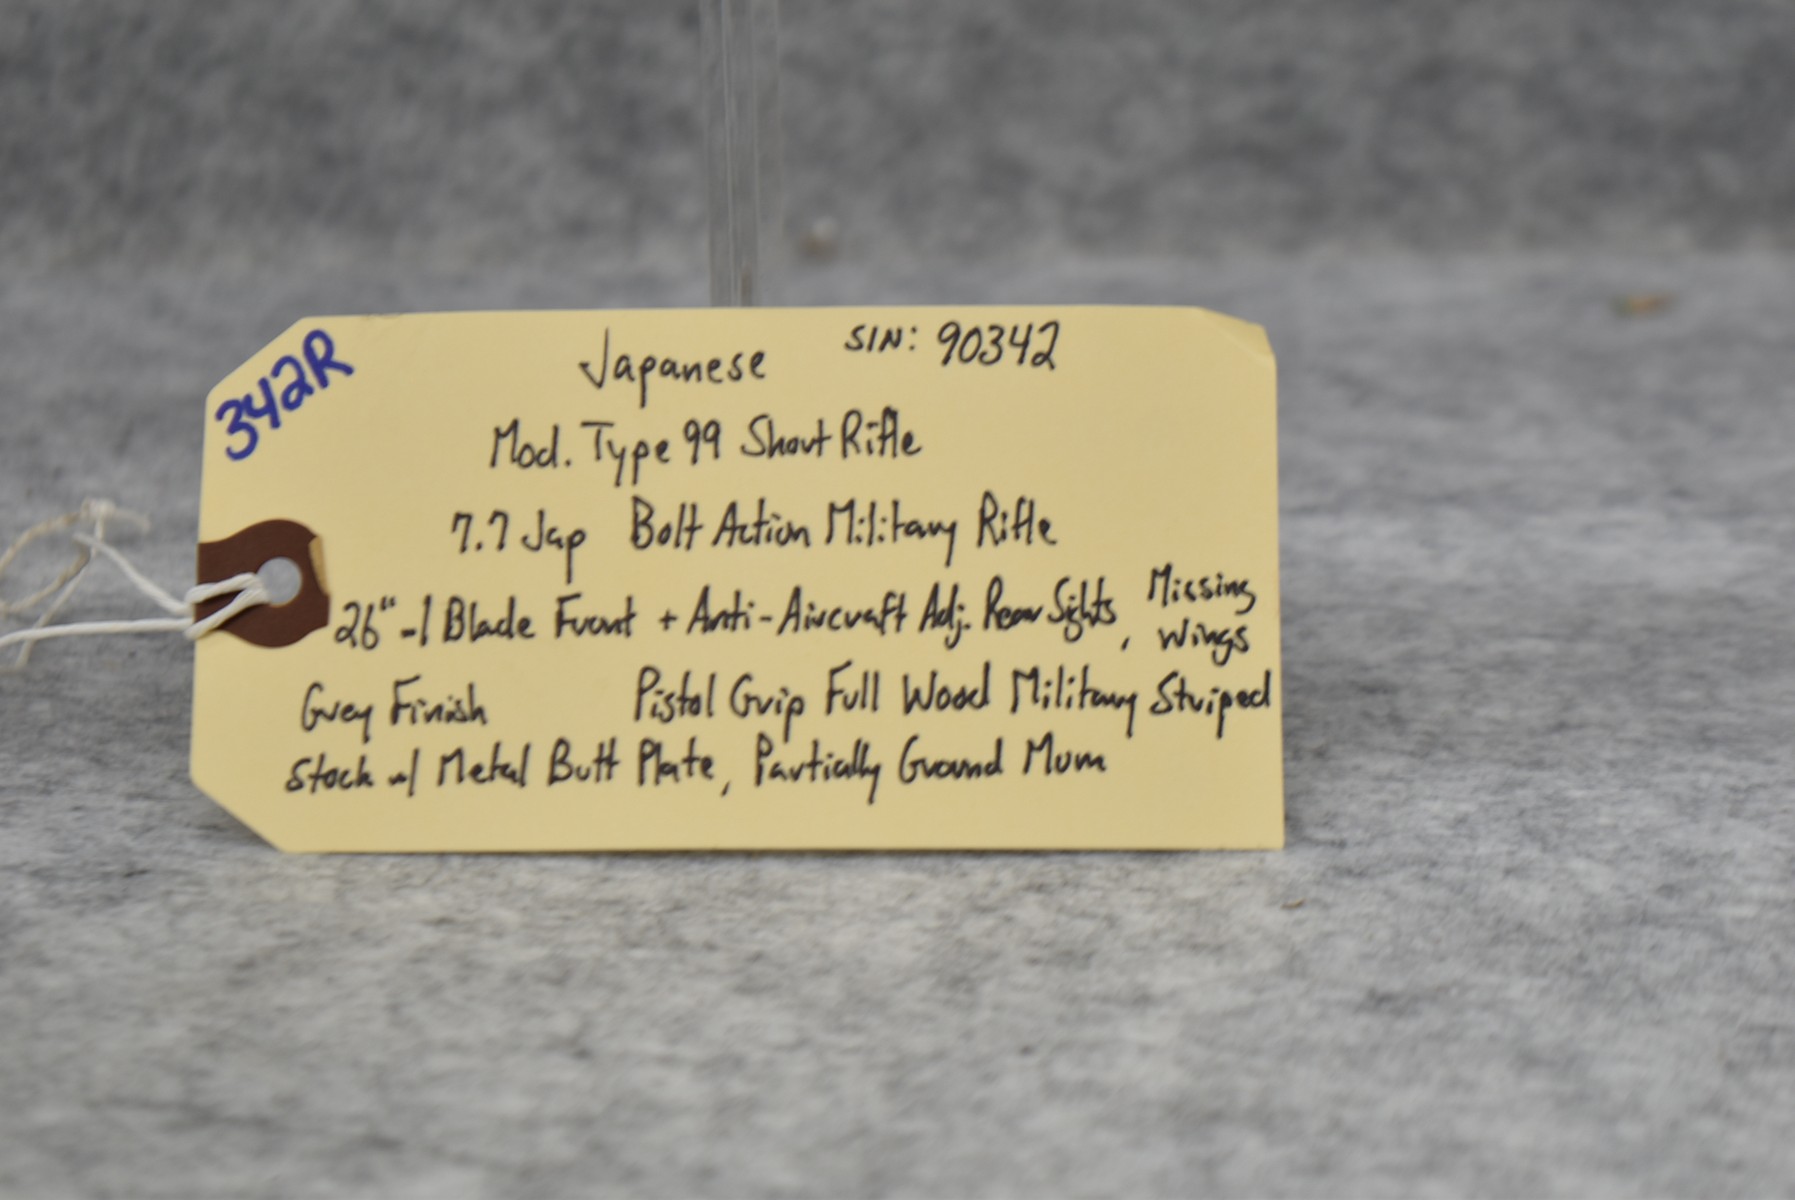 342R
Japanese S/N: 90342
Mod. Type 99 Short Rifle
7.7 Jap Bolt Action Military Rifle
26" w/ Blade Front + Anti-Aircraft Adj. Rear Sights, Missing Wings
Grey Finish Pistol Grip Full Wood Military Striped
Stock w/ Metal Butt Plate, Partially Ground Mum